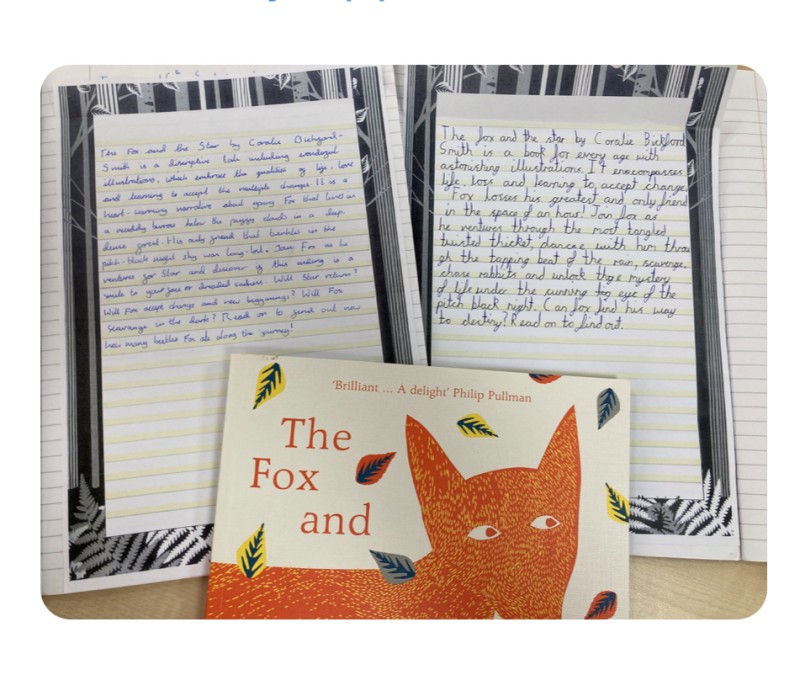 The Fox and the Star by Coralie Bickford-
Smith is a discriptive tale including wonderful
illustrations, which embrces the qualities of life, love
and learning to accept the multiple changes. It is a
heart-warming narrative about young Fox that lives in
a burrow below the clouds in a deep,
dense forest. His only friend that twinkles in the
pitch-black night sky was long lost. Join Fox as he
ventures for Star and discover if this ending is a
smile to your face or dreaded sadness. Will Star return?
Will Fox accept change and new beginnings? Will Fox
scavenge in the dark? Read on to find out now
how many beetles Fox ate along the journey!
The fox and the star by Coralie Bickford
Smith is a book for every age with
astonishing illustrations. IT encompasses
life, loss and learning to accept change.
Fox losses his greatest and only friend
in the space of an hour! Join fox as
he ventures through the most tangled
twisted thicket, dance with him throu
gh the tapping beat of the rain, scavenge,
chase rabbits and unlock the mystery
of life under the cunning eye of the
pitch black night. Can fox find his way
to destiny? Read on to find out.
'Brilliant ... A delight' Philip Pullman
The
Fox
and